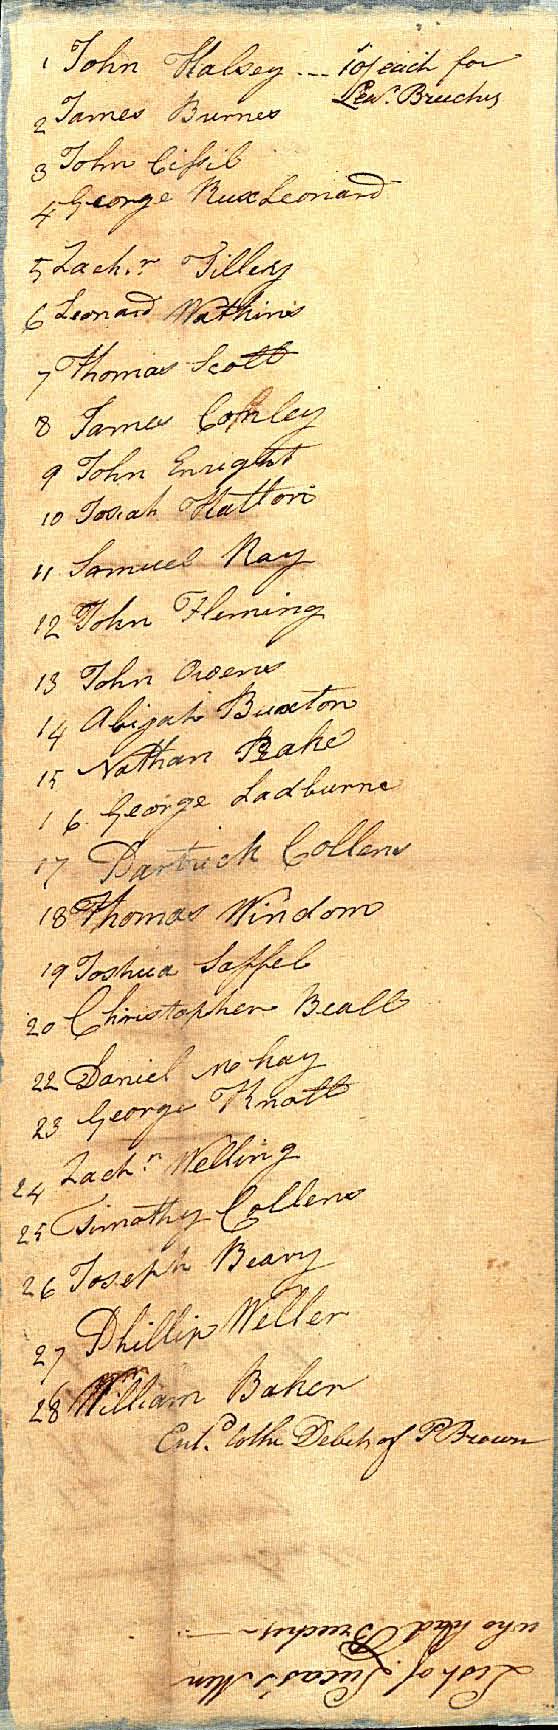 1 John Halsey --- 10/ each for
Lear. Breeches
2 James Burnes
3 John Cissil
4 George Rux Leonard
5 Zachr. Tilley
6 Leonard Wathins
7 Thomas Scott
8 James Comley
9 John Enright
10 Josiah Hatton
11 Samuel Ray
12 John Fleming
13 John Owens
14 Abijah Buxton
15 Nathan Peake
16. George Ladburne
17 Partrick Collens
18 Thomas Windom
19 Joshua Saffel
20 Christopher Beall
22 Daniel McKay
23 George Knott
24 Zachr. Welling
25 Timothy Collens
26 Joseph Beary
27 Phillip Weller
28 William Baker
Entd. to the Debit of P Brown
List of Lucas's Men
who had Breeches —